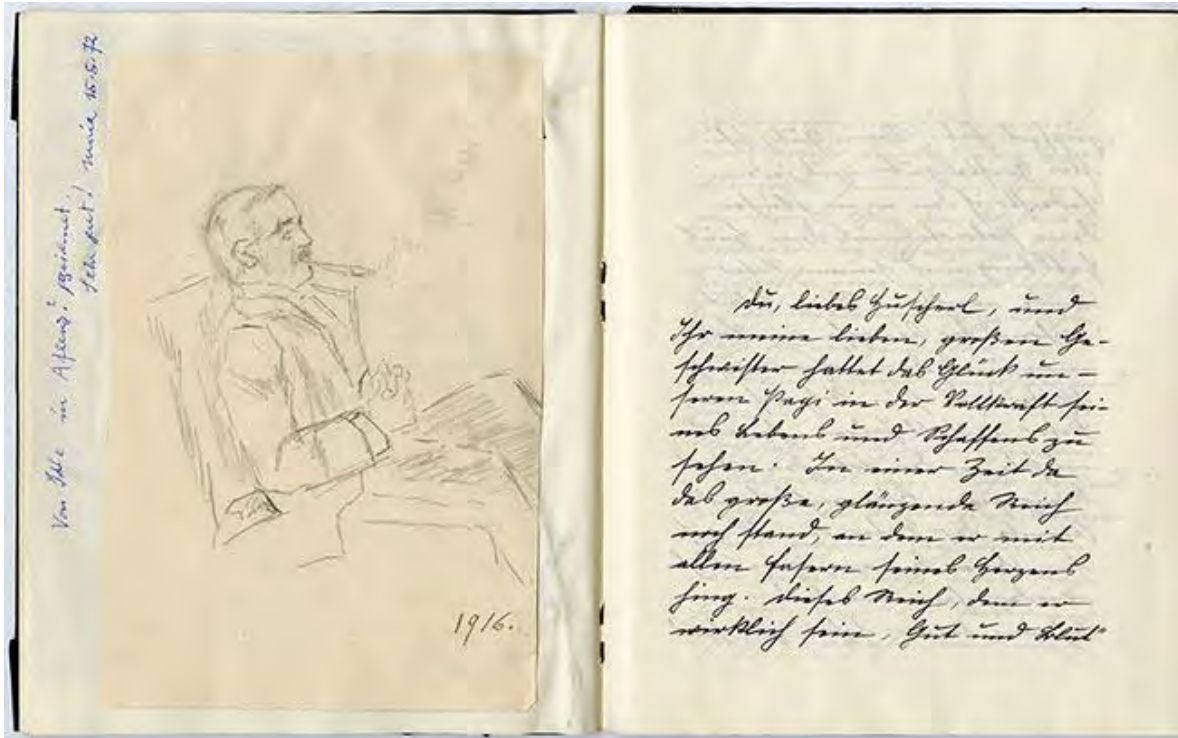 Von Ihle in Aflenz? gezeichnet,
sehr gut! 15.5.72
1916.
Du, liebes Huscherl, und
Ihr meine lieben, großen Ge-
schwister hattet das Glück un-
seren Papi in der Vollkraft sei-
nes Lebens und Schaffens zu
sehen. In einer Zeit da
das große, glänzende Reich
noch stand, an dem er mit
allen Fasern seines Herzens
hing. Dieses Reich, dem er
wirklich sein „Gut und Blut"